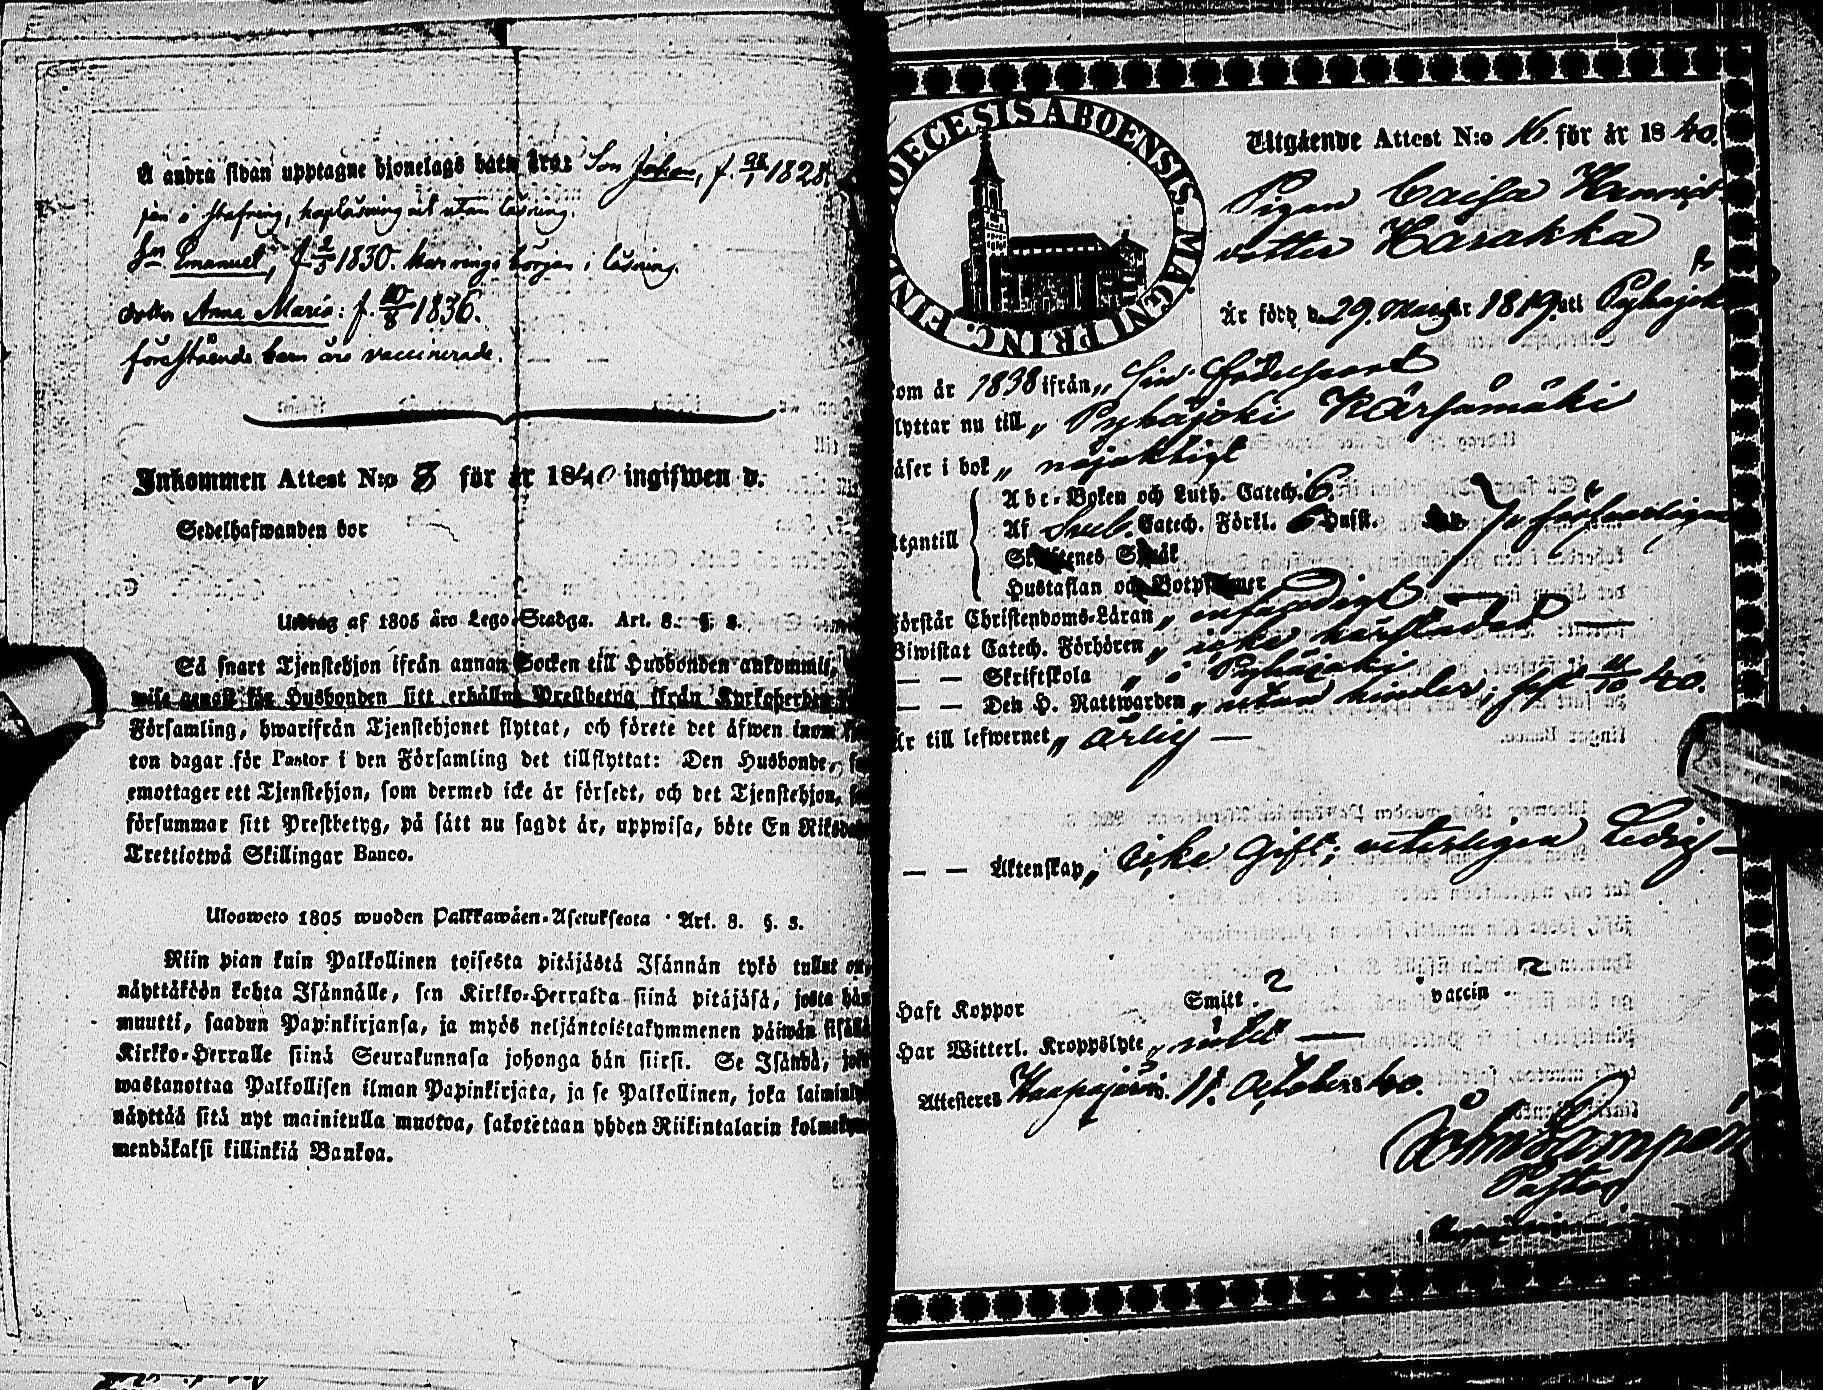 Å andra sidan upptagne hjonelags barn äro: Son Johan, f. 1828.
i stafning, utan läsning.
Emanuel, f. 2/3 1830. har börjat i läsning.
dotter Anna Maria: f. 10/8 1836.
förestående barn äro vaccinerade.
Inkommen Attest N:o 3 för år 1840 ingifwen d.
Sedelhafwanden bor
Utdrag af 1805 års Lego-Stadga. Art. 8. §. 3.
Så snart Tjenstehjon ifrån annan Socken till Husbonden ankommit,
wise genast för Husbonden sitt erhållna Prestbetyg ifrån Kyrkoherden
Församling, hwarifrån Tjenstehjonet flyttat, och förete det äfwen inom
ton dagar för Pastor i den Församling det tillflyttat: Den Husbonde,
emottager ett Tjenstehjon, som dermed icke är försedt, och det Tjenstehjon,
försummar sitt Prestbetyg, på sätt nu sagdt är, uppwisa, böte En Riksd
Trettiotwå Skillingar Banco.
Ulosweto 1805 wuoden Palkkawäen-Asetuksesta Art. 8. §. 3.
Niin pian kuin Palkollinen toisesta pitäjästä Isännän tykö tullut on,
näyttäköön kohta Isännälle, sen Kirkko-Herralta siinä pitäjäsä, josta hän
muutti, saadun Papinkirjansa, ja myös neljäntoistakymmenen päiwän sisällä
Kirkko-Herralle siinä Seurakunnasa johonga hän siirsi. Se Isändä, joka
wastanottaa Palkollisen ilman Papinkirjata, ja se Palkollinen, joka laiminly
näyttää sitä nyt mainitulla muotoa, sakotetaan yhden Riikintalarin kolmekym
mendäkaksi killinkiä Bankoa.
DIOECESIS ABOENSIS. MAGNI PRINC. FINL
Utgående Attest N:o 16. för år 1840.
Pigan Caisa Henrics
dotter Harakka
Är född d. 29. Mars år 1819. uti Pyhäjoki
om år 1838 ifrån „ sin födelseort
lyttar nu till „ Pyhäjoki Kärsämäki
äser i bok „ nöjaktigt
tantill
Abc-Boken och Luth. Catech. 6.
Af Sveb. Catech. Förkl. 6 Hufst.
Skriftenes Språk
Hustaflan och Botpsalmer
örstår Christendoms-Läran „ enfaldigt
Biwistat Catech. Förhören „ icke härstädes
— — Skriftskola „ i Pyhäjoki
— — Den H. Nattwarden „ utan hinder, sist 11/10 40.
Är till lefwernet „ ärlig —
— — Äktenskap „ icke gift; veterligen Ledig —
Haft Koppor Smitt. ? vaccin ?
Har Witterl. Kroppslyte „ intet —
Attesteres Haapajärvi d. 11. October 40.
Pastor